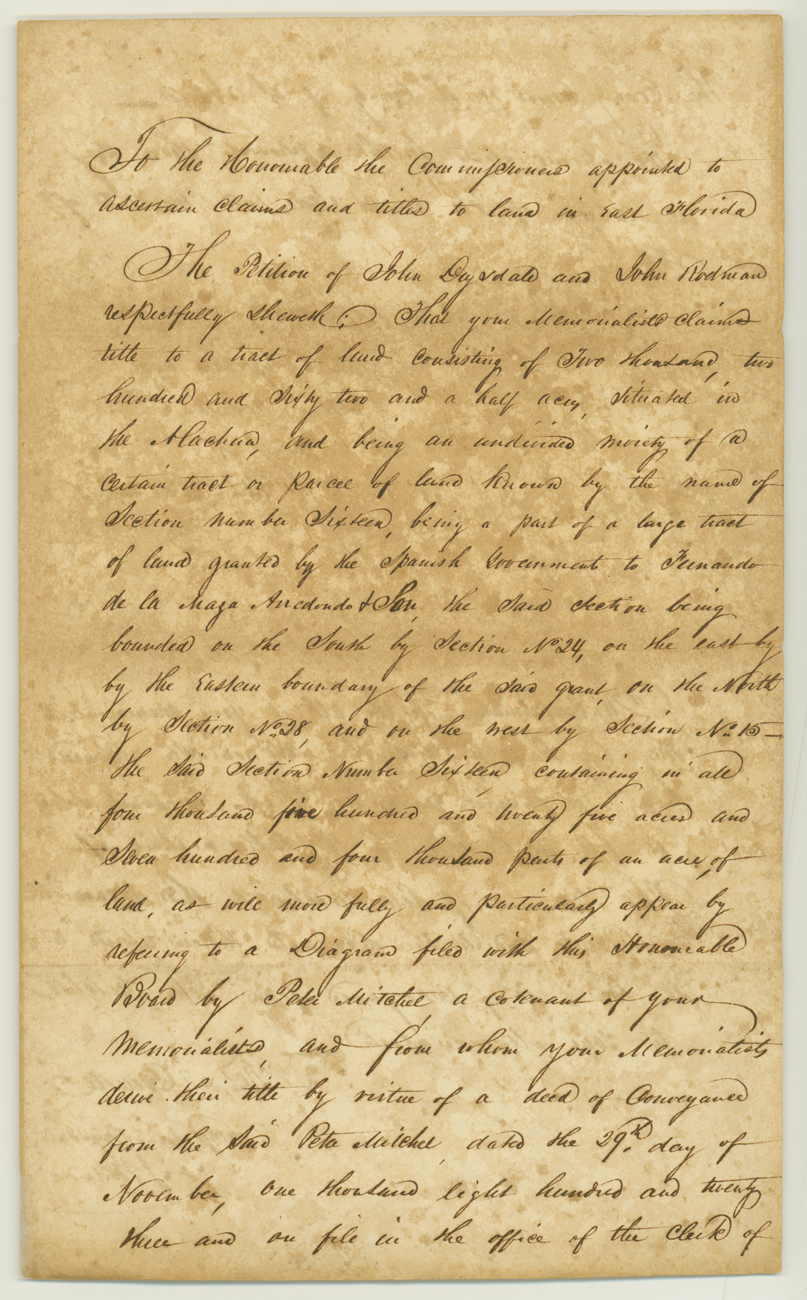 To the Honourable the Commissioners appointed to
ascertain claims and titles to land in East Florida
The Petition of John Drysdale and John Rodman
respectfully sheweth; That your Memorialists claims
title to a tract of land consisting of Two thousand, two
hundred and Sixty two and a half acres, situated in
the Alachua, and being an undivided moiety of a
certain tract or parcel of land known by the name of
Section number Sixteen, being a part of a large tract
of land granted by the Spanish Government to Fernando
de la Maza Arredondo & Son, the said section being
bounded on the South by Section No. 24, on the east by
by the Eastern boundary of the said grant, on the North
by Section No. 28, and on the west by Section No. 15 —
the said Section Number Sixteen, containing in all
four thousand five hundred and twenty five acres and
Seven hundred and four thousand parts of an acre, of
land, as will more fully and particularly appear by
referring to a Diagram filed with this Honourable
Board by Peter Mitchel, a cotenant of your
Memorialists, and from whom your Memorialists
derive their title by virtue of a deed of Conveyance
from the said Peter Mitchel, dated the 29th. day of
November, One thousand eight hundred and twenty
three and on file in the office of the Clerk of